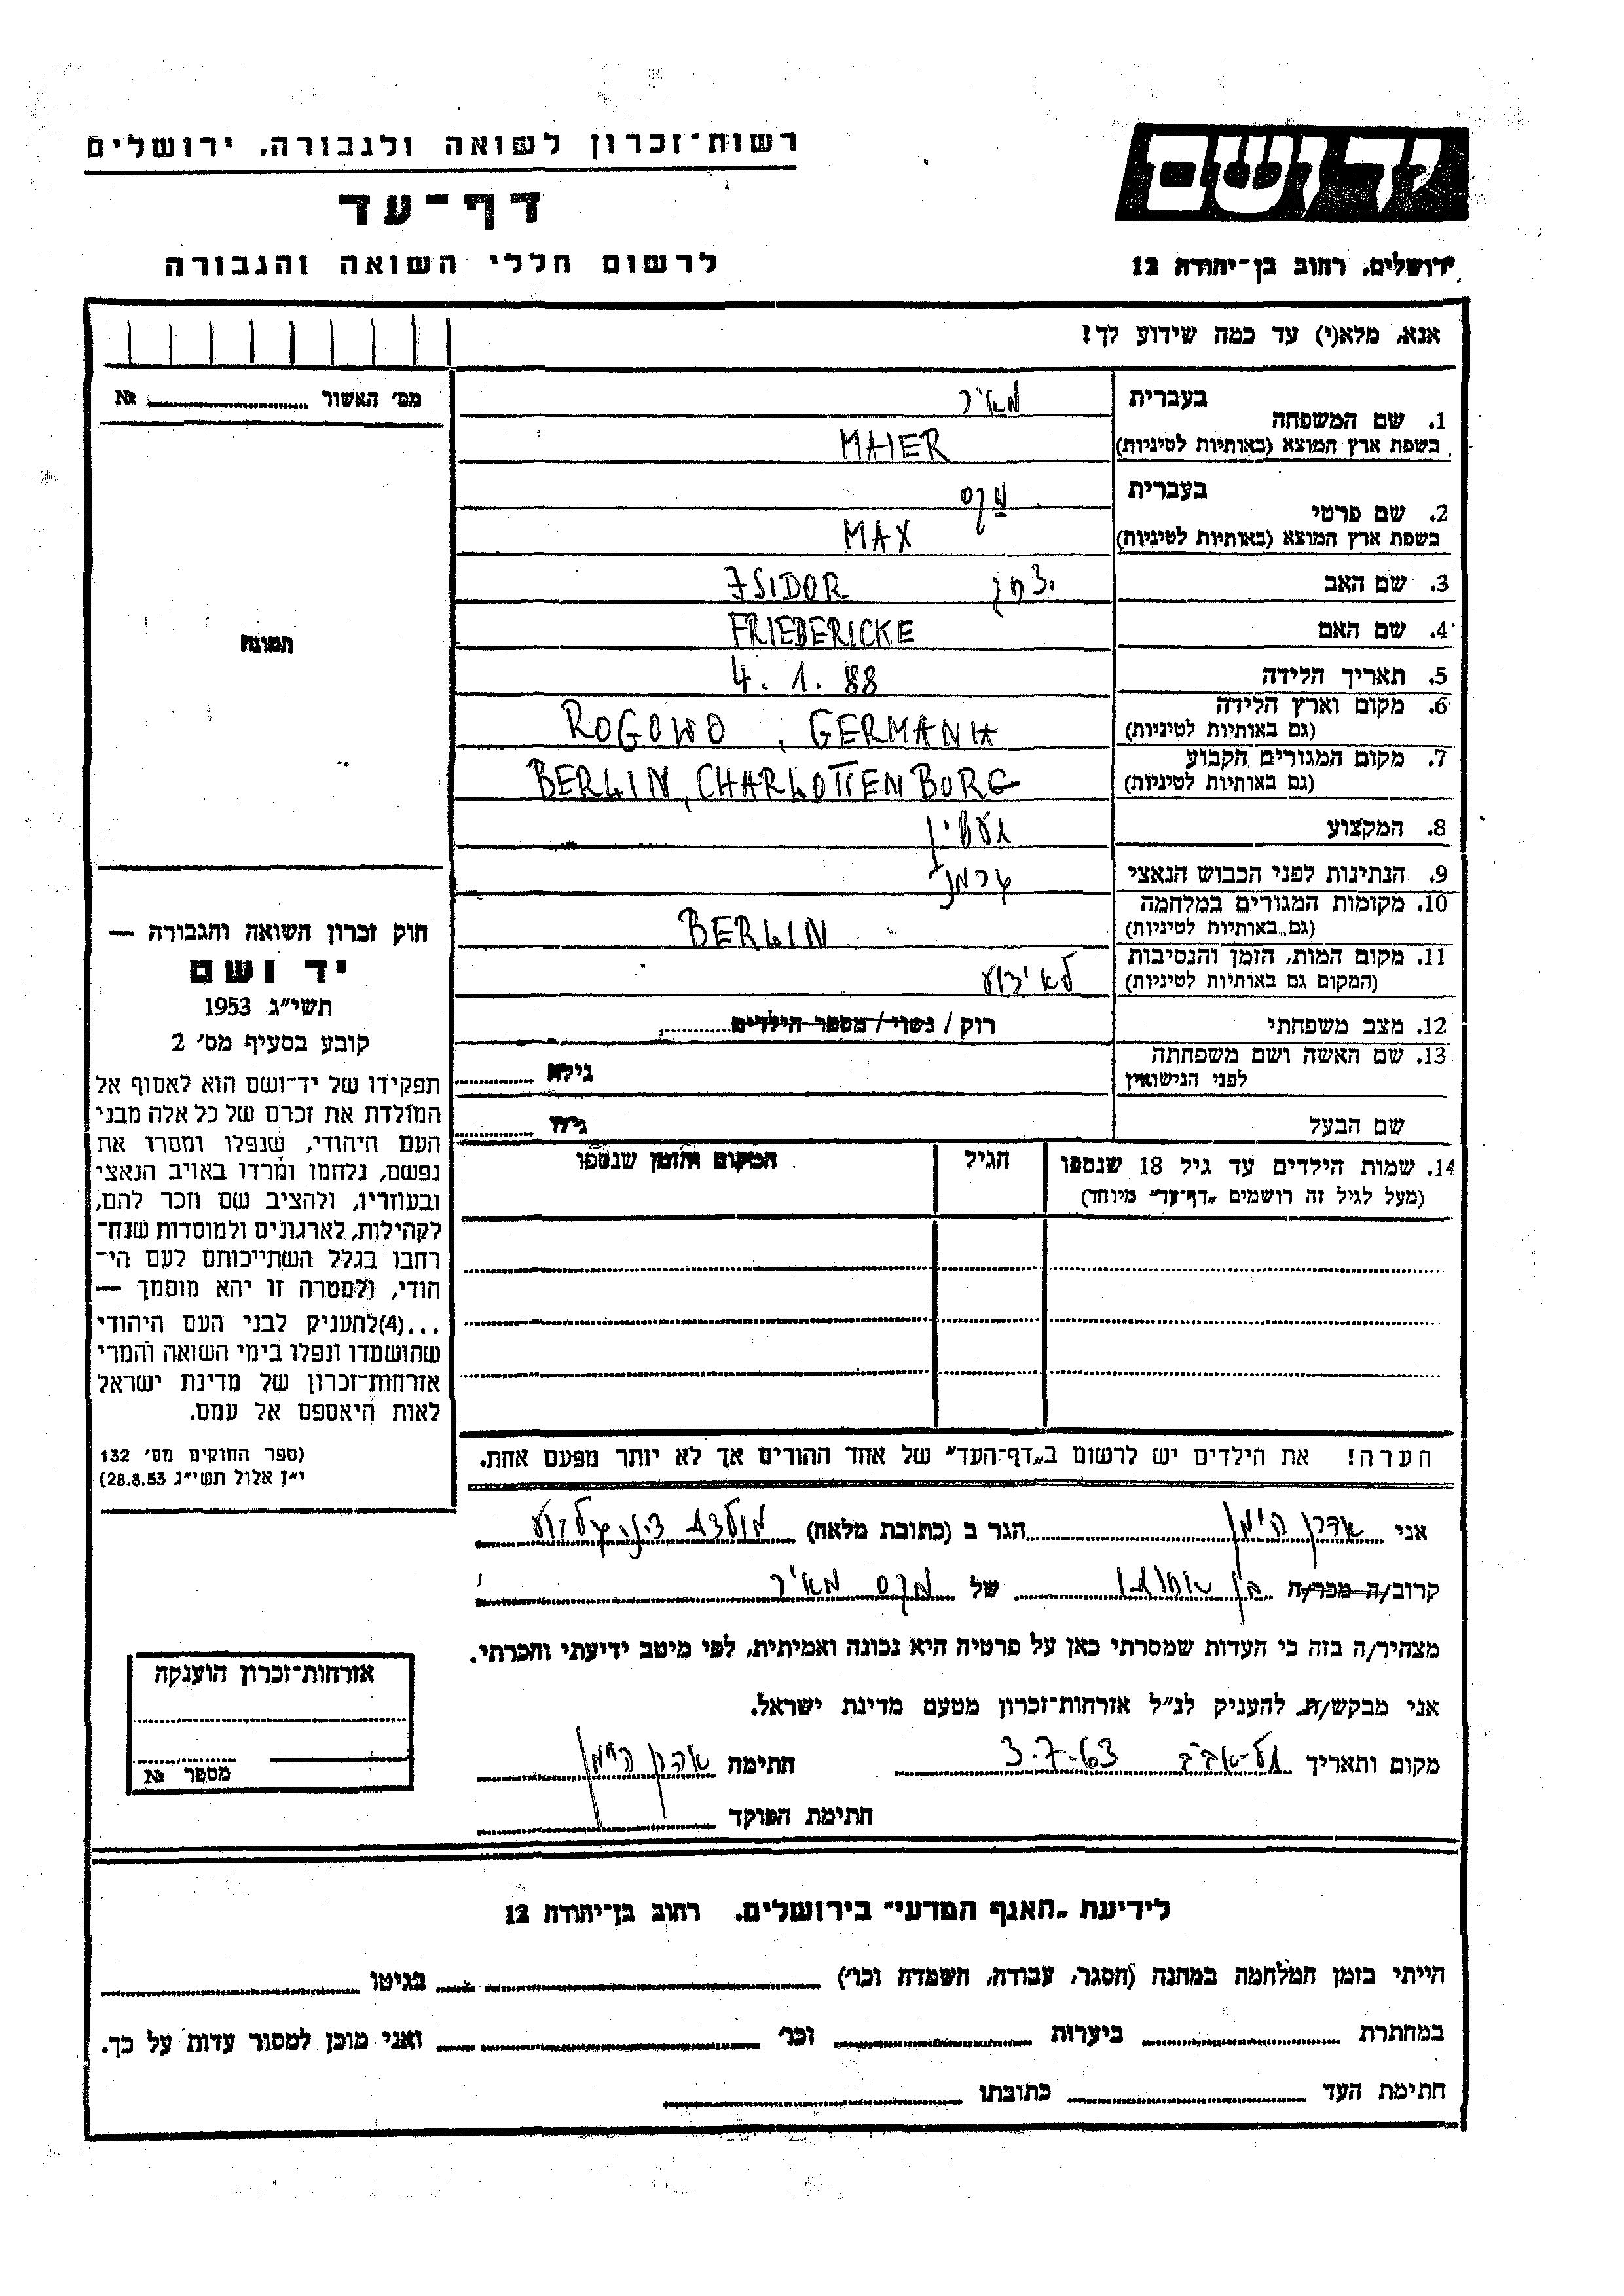 רשות־זכרון לשואה ולגבורה, ירושלים
יד ושם
דף־עד
לרשום חללי השואה והגבורה
ירושלים, רחוב בן־יהודה 12
אנא, מלא(י) עד כמה שידוע לך!
מס׳ האשור № 
1. שם המשפחה
בעברית מאיר
בשפת ארץ המוצא (באותיות לטיניות) MAIER
2. שם פרטי
בעברית מקס
בשפת ארץ המוצא (באותיות לטיניות) MAX
3. שם האב יצחק ISIDOR
4. שם האם FRIEDERICKE
5. תאריך הלידה 4. 1. 88
6. מקום וארץ הלידה
(גם באותיות לטיניות) ROGOWO , GERMANIA
7. מקום המגורים הקבוע
(גם באותיות לטיניות) BERLIN, CHARLOTTENBURG
8. המקצוע
9. הנתינות לפני הכבוש הנאצי גרמני
10. מקומות המגורים במלחמה
(גם באותיות לטיניות) BERLIN
11. מקום המות, הזמן והנסיבות
(המקום גם באותיות לטיניות) לא ידוע
12. מצב משפחתי רוק / נשוי / מספר הילדים
13. שם האשה ושם משפחתה
לפני הנישואין גילה
שם הבעל גילו
14. שמות הילדים עד גיל 18 שנספו
(מעל לגיל זה רושמים „דף־עד” מיוחד)
הגיל
המקום והזמן שנספו
תמונה
חוק זכרון השואה והגבורה —
יד ושם
תשי״ג 1953
קובע בסעיף מס׳ 2
תפקידו של יד־ושם הוא לאסוף אל
המולדת את זכרם של כל אלה מבני
העם היהודי, שנפלו ומסרו את
נפשם, נלחמו ומרדו באויב הנאצי
ובעוזריו, ולהציב שם וזכר להם,
לקהילות, לארגונים ולמוסדות שנח־
רחבו בגלל השתייכותם לעם הי־
הודי, ולמטרה זו יהא מוסמך —
...(4)להעניק לבני העם היהודי
שהושמדו ונפלו בימי השואה והמרי
אזרחות־זכרון של מדינת ישראל
לאות היאספם אל עמם.
(ספר החוקים מס׳ 132
י״ז אלול תשי״ג 28.8.53)
הערה! את הילדים יש לרשום ב„דף־העד” של אחד ההורים אך לא יותר מפעם אחת.
אני אהרן היימן הגר ב (כתובת מלאה)
קרוב/ה מכר/ה בן אחותו של מקס מאיר
מצהיר/ה בזה כי העדות שמסרתי כאן על פרטיה היא נכונה ואמיתית, לפי מיטב ידיעתי והכרתי.
אני מבקש/ת להעניק לנ״ל אזרחות־זכרון מטעם מדינת ישראל.
מקום ותאריך תל-אביב 3.7.63 חתימה אהרן היימן
חתימת הפוקד
אזרחות־זכרון הוענקה
מספר №
לידיעת „האגף המדעי” בירושלים, רחוב בן־יהודה 12
הייתי בזמן המלחמה במחנה (הסגר, עבודה, השמדה וכו׳) בגיטו
במחתרת ביערות וכו׳ ואני מוכן למסור עדות על כך.
חתימת העד כתובתו